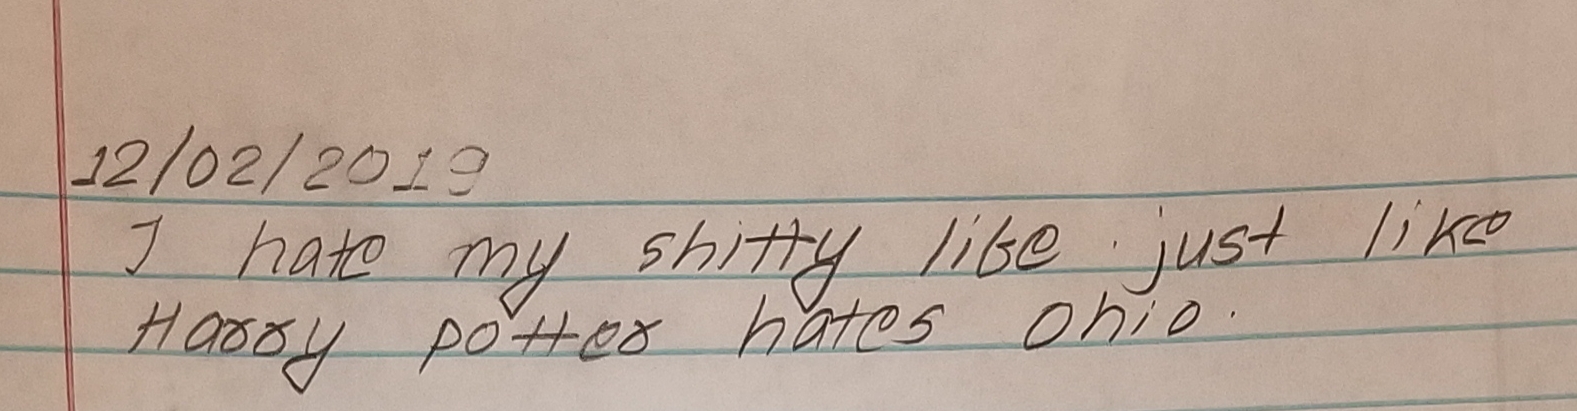 12/02/2019
I hate my shitty life. just like
Harry potter hates Ohio.